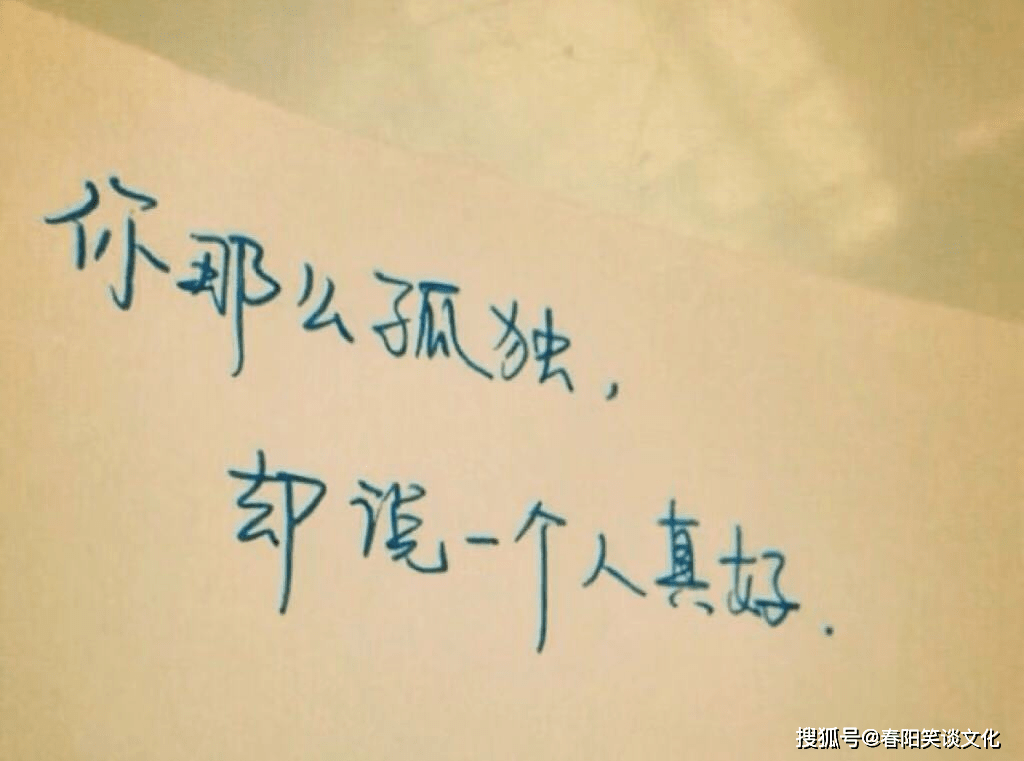 你那么孤独,
却说一个人真好.
搜狐号@春阳笑谈文化